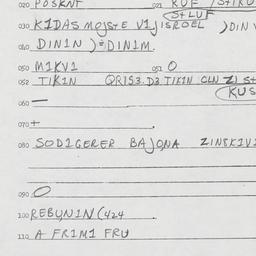 020 POSKNT 021 KUF
STLUF
030 KIDAS MOJSTE VIJISROEL ) DIN
040 DININ ) = DINIM.
050 MIKVI 051 O
052 TIKIN QRIS3. D3 TIKIN CLN ZI St
(KUS
060 —
070 +
080 SODIGERER BAJONA ZINSKIVI
090 O
100 REBYNIN (424
110 A FRIMI FRU